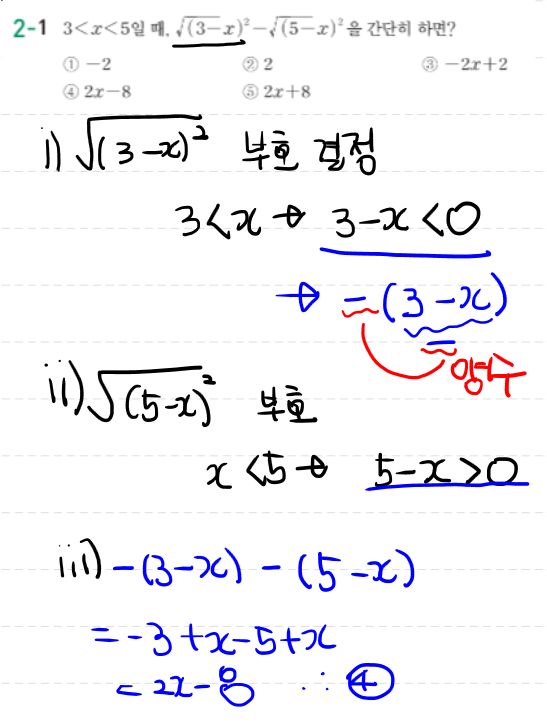 2-1 3<x<5일 때, √(3-x)²-√(5-x)²을 간단히 하면?
① -2 ② 2 ③ -2x+2
④ 2x-8 ⑤ 2x+8
i) √(3-x)² 부호 결정
3<x → 3-x<0
→ -(3-x)
-
양수
ii) √(5-x)² 부호
x<5 → 5-x>0
iii) -(3-x) - (5-x)
= -3+x-5+x
= 2x-8 ∴ ④